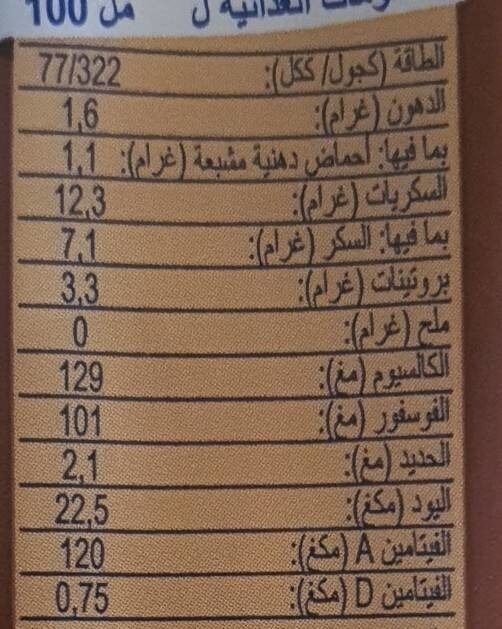 الغذائية ل 100 مل
الطاقة (كجول/ ككل): 77/322
الدهون (غرام): 1,6
بما فيها: أحماض دهنية مشبعة (غرام): 1,1
السكريات (غرام): 12,3
بما فيها: السكر (غرام): 7,1
بروتينات (غرام): 3,3
ملح (غرام): 0
الكالسيوم (مغ): 129
الفوسفور (مغ): 101
الحديد (مغ): 2,1
اليود (مكغ): 22,5
الفيتامين A (مكغ): 120
الفيتامين D (مكغ): 0,75